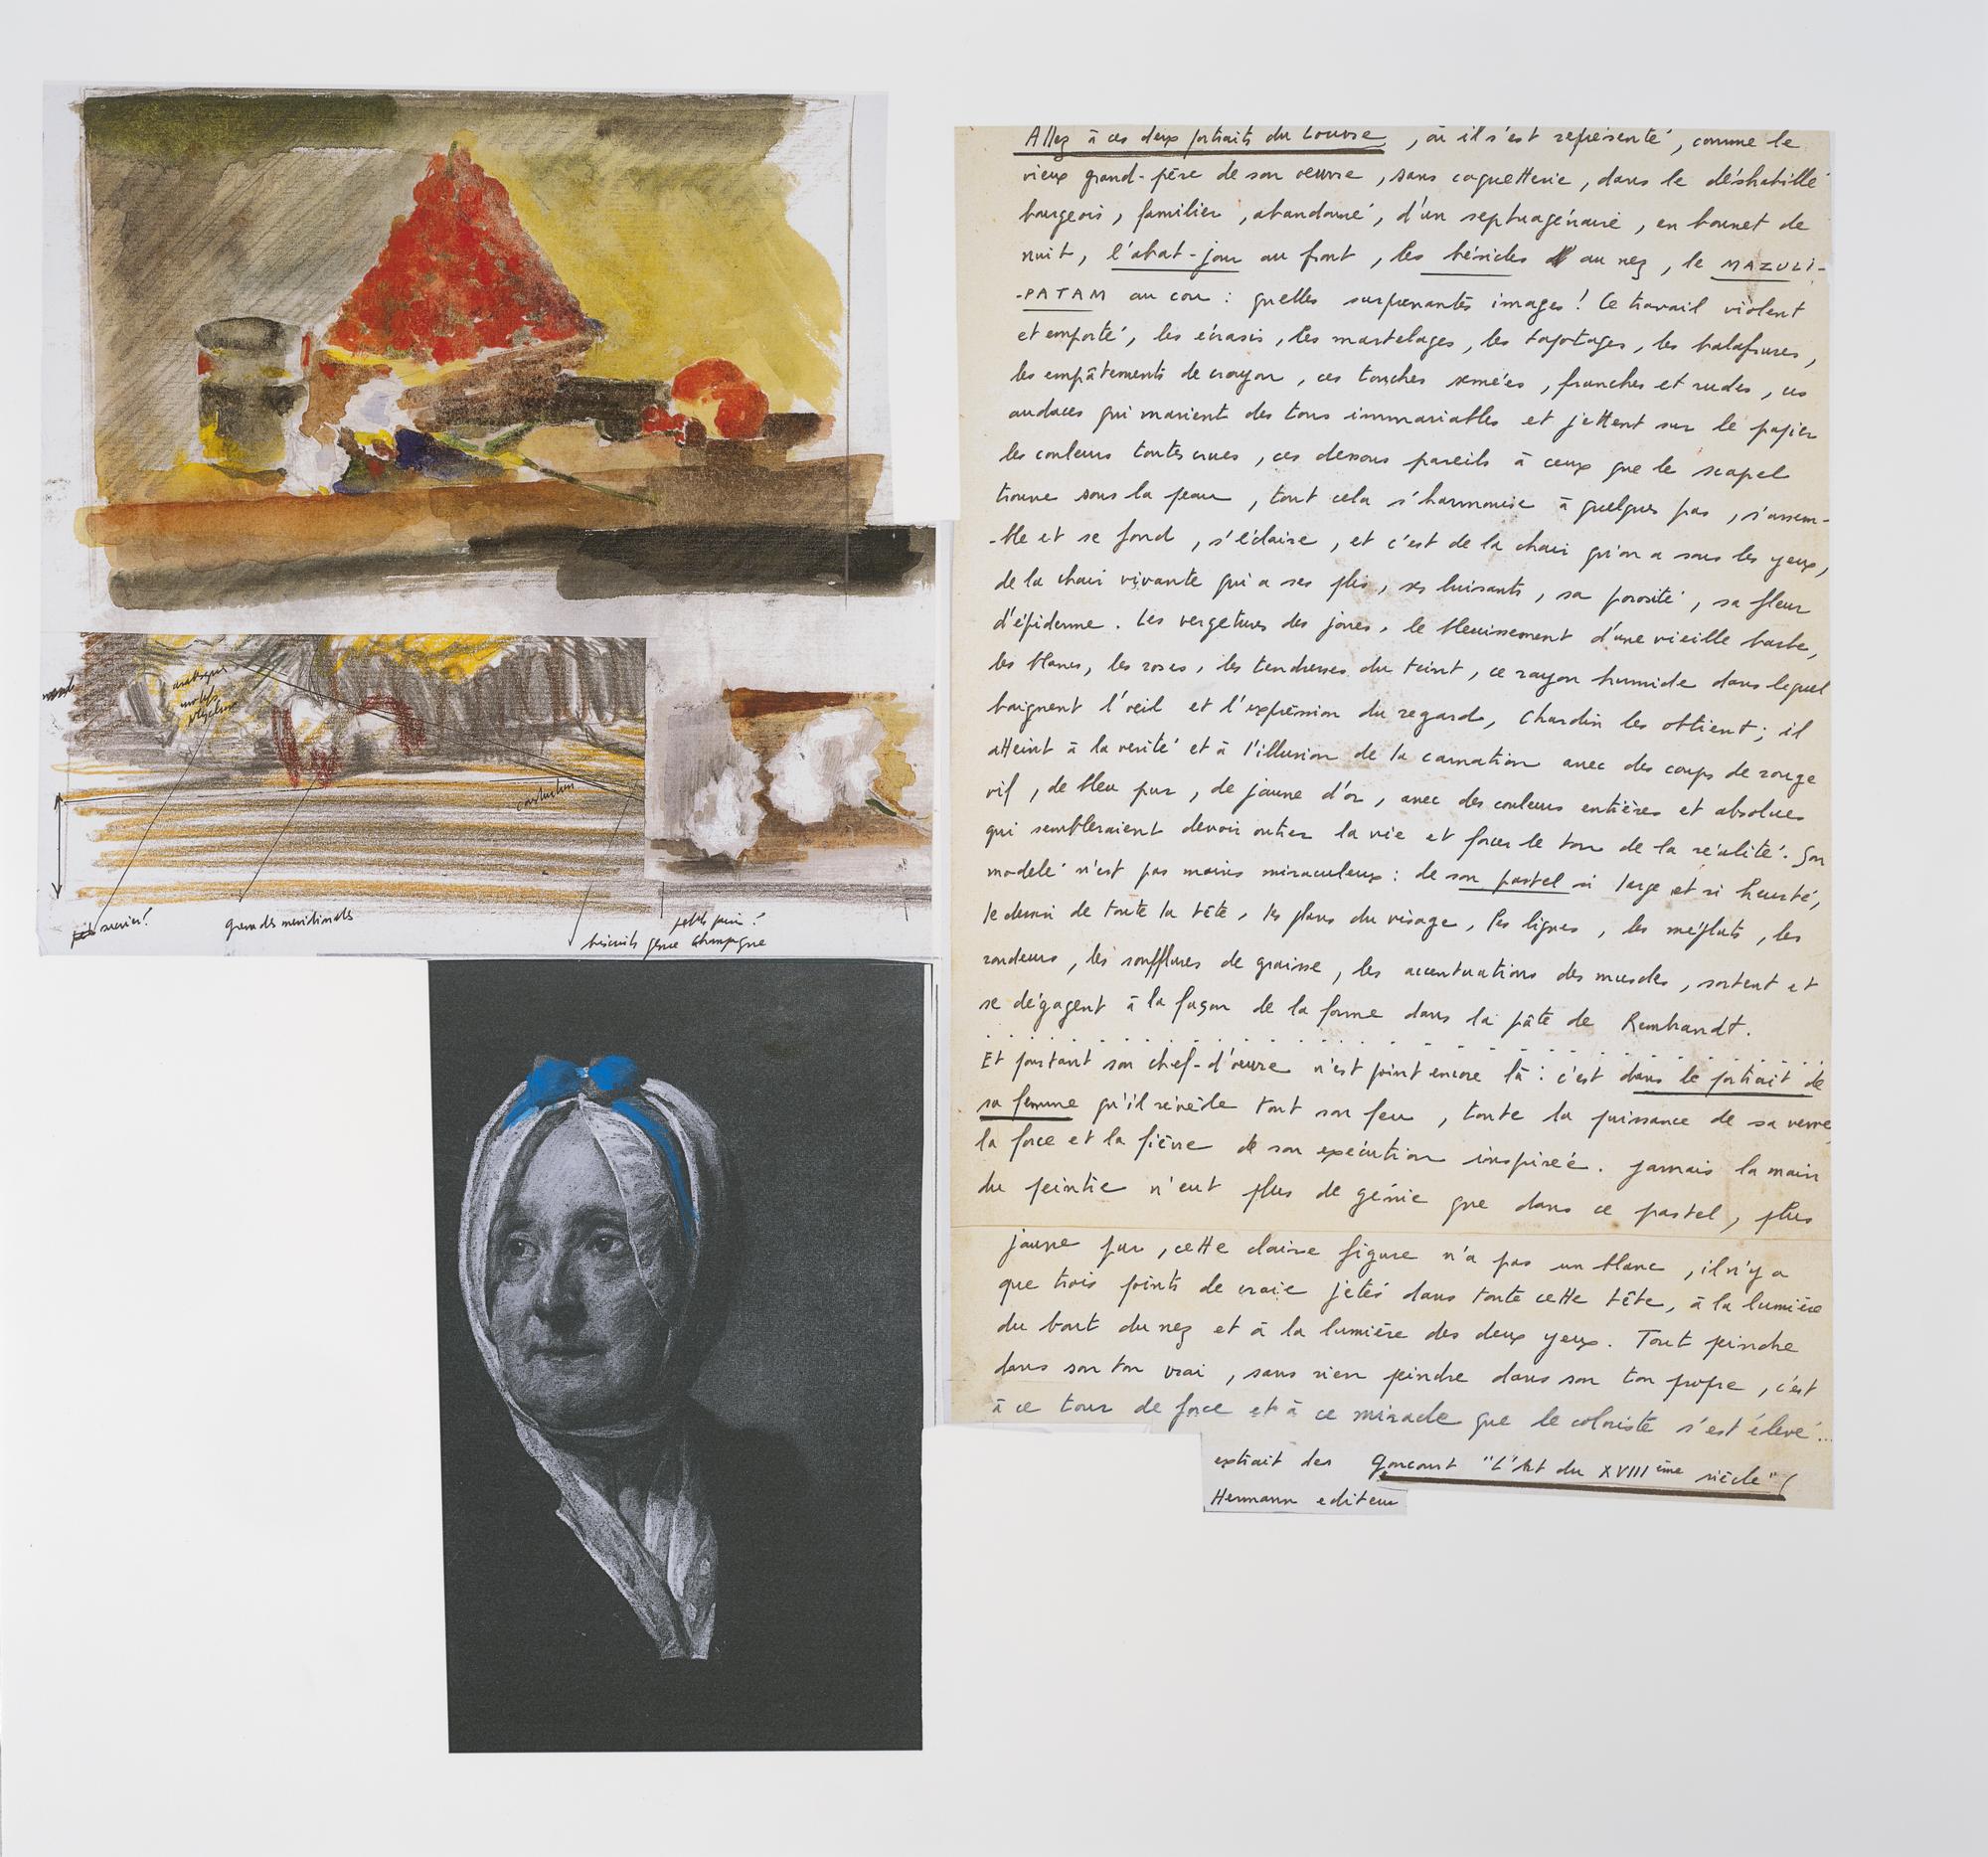 arabesques
motifs
végétaux
contuction
sucrier?
grenades méridionales
petits pain?
biscuits genre champagne
Allez à ces deux portraits du Louvre, où il s'est représenté, comme le
vieux grand-père de son oeuvre, sans coquetterie, dans le déshabillé
bourgeois, familier, abandonné, d'un septuagénaire, en bonnet de
nuit, l'abat-jour au front, les bésicles au nez, le MAZULI-
-PATAM au cou : quelles surprenantes images! Ce travail violent
et emporté, les écrasis, les martelages, les tapotages, les balafrures,
les empâtements de crayon, ces touches semées, franches et rudes, ces
audaces qui marient des tons immariables et jettent sur le papier
les couleurs toutes crues, ces dessous pareils à ceux que le scapel
trouve sous la peau, tout cela s'harmonise à quelques pas, s'assem-
-ble et se fond, s'éclaire, et c'est de la chair qu'on a sous les yeux,
de la chair vivante qui a ses plis, ses luisants, sa porosité, sa fleur
d'épiderme. Les vergetures des joues, le bleuissement d'une vieille barbe,
les blancs, les roses, les tendresses du teint, ce rayon humide dans lequel
baignent l'oeil et l'expression du regard, Chardin les obtient; il
atteint à la vérité et à l'illusion de la carnation avec des coups de rouge
vif, de bleu pur, de jaune d'or, avec des couleurs entières et absolues
qui sembleraient devoir outrer la vie et forcer le ton de la réalité. Son
modelé n'est pas moins miraculeux : de son pastel si large et si heurté,
le dessin de toute la tête, les plans du visage, les lignes, les méplats, les
rondeurs, les soufflures de graisse, les accentuations des muscles, sortent et
se dégagent à la façon de la forme dans la pâte de Rembrandt.
Et pourtant son chef-d'oeuvre n'est point encore là : c'est dans le portrait de
sa femme qu'il révèle tout son feu, toute la puissance de sa verve,
la force et la fièvre de son exécution inspirée. Jamais la main
du peintre n'eut plus de génie que dans ce pastel, plus
jaune pur, cette claire figure n'a pas un blanc, il n'y a
que trois points de craie jetés dans toute cette tête, à la lumière
du bout du nez et à la lumière des deux yeux. Tout peindre
dans son ton vrai, sans rien peindre dans son ton propre, c'est
à ce tour de force et à ce miracle que le coloriste s'est élevé...
extrait des Goncourt "L'Art du XVIIIème siècle" (
Hermann editeur